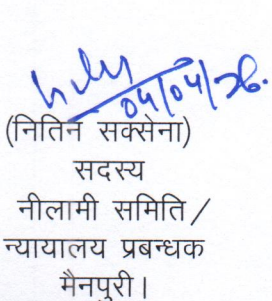 04/04/26.
(नितिन सक्सेना)
सदस्य
नीलामी समिति/
न्यायालय प्रबन्धक
मैनपुरी।